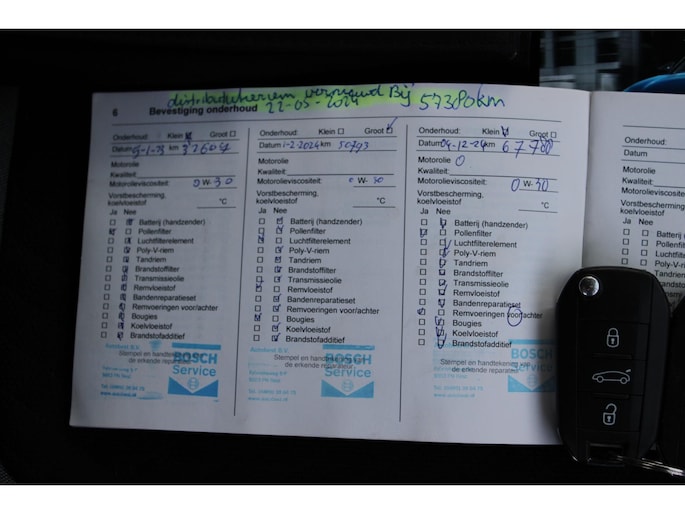 distributieriem vernieuwd Bij
22-05-2024 57380km
6 Bevestiging onderhoud
Onderhoud: Klein Groot
Datum 5-1-23 km 32604
Motorolie
Kwaliteit:
Motorolieviscositeit: 0 W-30
Vorstbescherming,
koelvloeistof °C
Ja Nee
Batterij (handzender)
Pollenfilter
Luchtfilterelement
Poly-V-riem
Tandriem
Brandstoffilter
Transmissieolie
Remvloeistof
Bandenreparatieset
Remvoeringen voor/achter
Bougies
Koelvloeistof
Brandstofadditief
Autofand B.V.
Stempel en handtekening van
de erkende reparateur.
BOSCH
Service
Onderhoud: Klein Groot
Datum 1-2-2024 km 50793
Motorolie
Kwaliteit:
Motorolieviscositeit: 0 W-30
Vorstbescherming,
koelvloeistof °C
Ja Nee
Batterij (handzender)
Pollenfilter
Luchtfilterelement
Poly-V-riem
Tandriem
Brandstoffilter
Transmissieolie
Remvloeistof
Bandenreparatieset
Remvoeringen voor/achter
Bougies
Koelvloeistof
Brandstofadditief
Stempel en handtekening van
de erkende reparateur.
BOSCH
Service
Onderhoud: Klein Groot
Datum 04-12-24 km 67788
Motorolie
Kwaliteit:
Motorolieviscositeit: 0 W-30
Vorstbescherming,
koelvloeistof °C
Ja Nee
Batterij (handzender)
Pollenfilter
Luchtfilterelement
Poly-V-riem
Tandriem
Brandstoffilter
Transmissieolie
Remvloeistof
Bandenreparatieset
Remvoeringen voor/achter
Bougies
Koelvloeistof
Brandstofadditief
Stempel en handtekening van
de erkende reparateur.
BOSCH
Service
Onderhoud:
Datum
Motorolie
Kwaliteit:
Motorolieviscositeit:
Vorstbescherming,
koelvloeistof
Ja Nee
Batterij
Pollenfilter